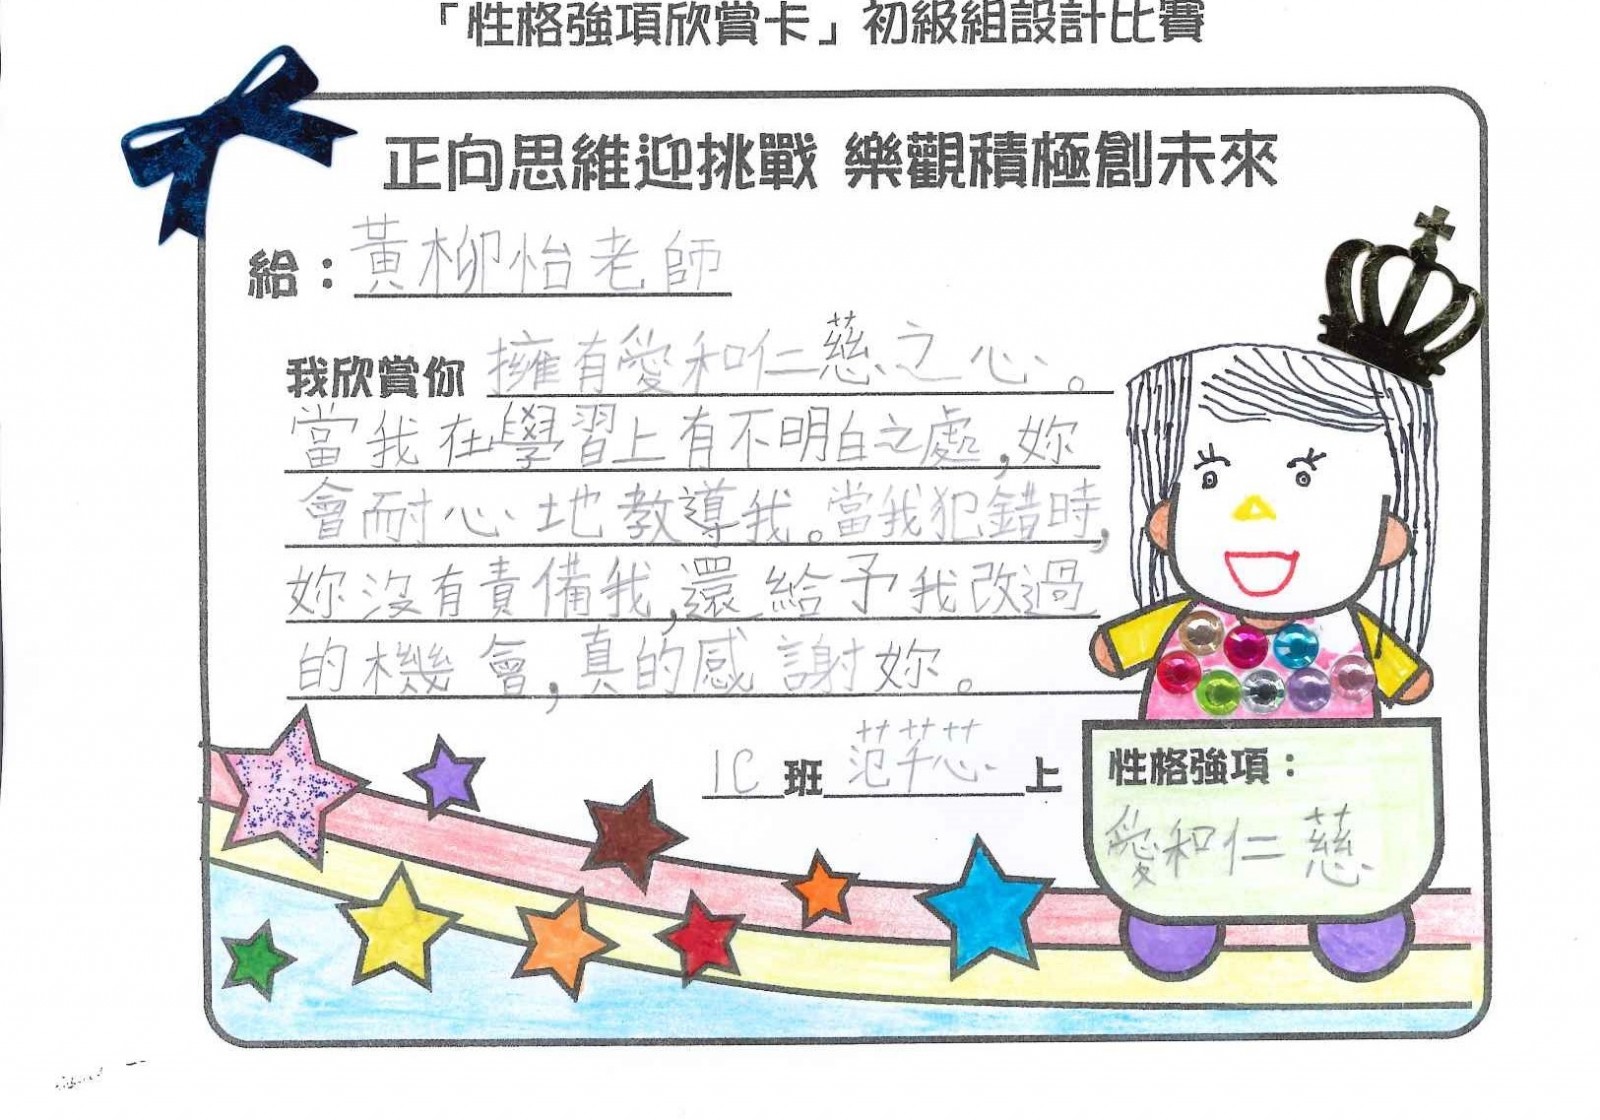 「性格強項欣賞卡」初級組設計比賽
正向思維迎挑戰 樂觀積極創未來
給：黃柳怡老師
我欣賞你 擁有愛和仁慈之心。
當我在學習上有不明白之處，妳
會耐心地教導我。當我犯錯時，
妳沒有責備我，還給予我改過
的機會，真的感謝妳。
1C 班 范芊芯 上
性格強項：
愛和仁慈